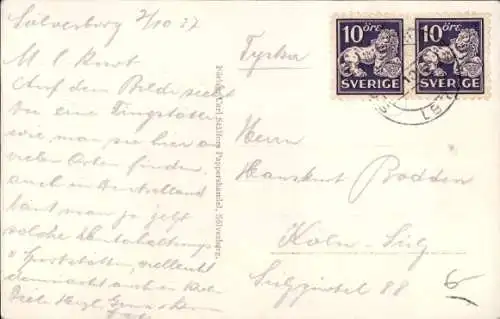 Sölvesborg 2/10 37
M l Kurt
Auf dem Bilde siehst
Du eine Tingstätte
wie man sie hier an
vielen Orten findet.
auch in Deutschland
baut man ja jetzt
solche Unterhaltungs
u Sportstätten, vielleicht
demnächst auch in Köln
Viele Herzl.
Förlag: Carl Ställers Pappershandel, Sölvesborg.
Tyska
10 ÖRE
SVERIGE
10 ÖRE
SVERIGE
Herrn
Hanskurt Bodden
Köln-Sülz
Sülzgürtel 88
6